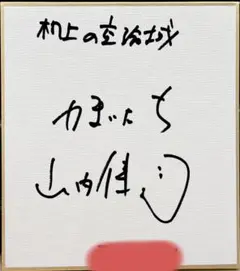 机上の空論城
かまいたち
山内健司